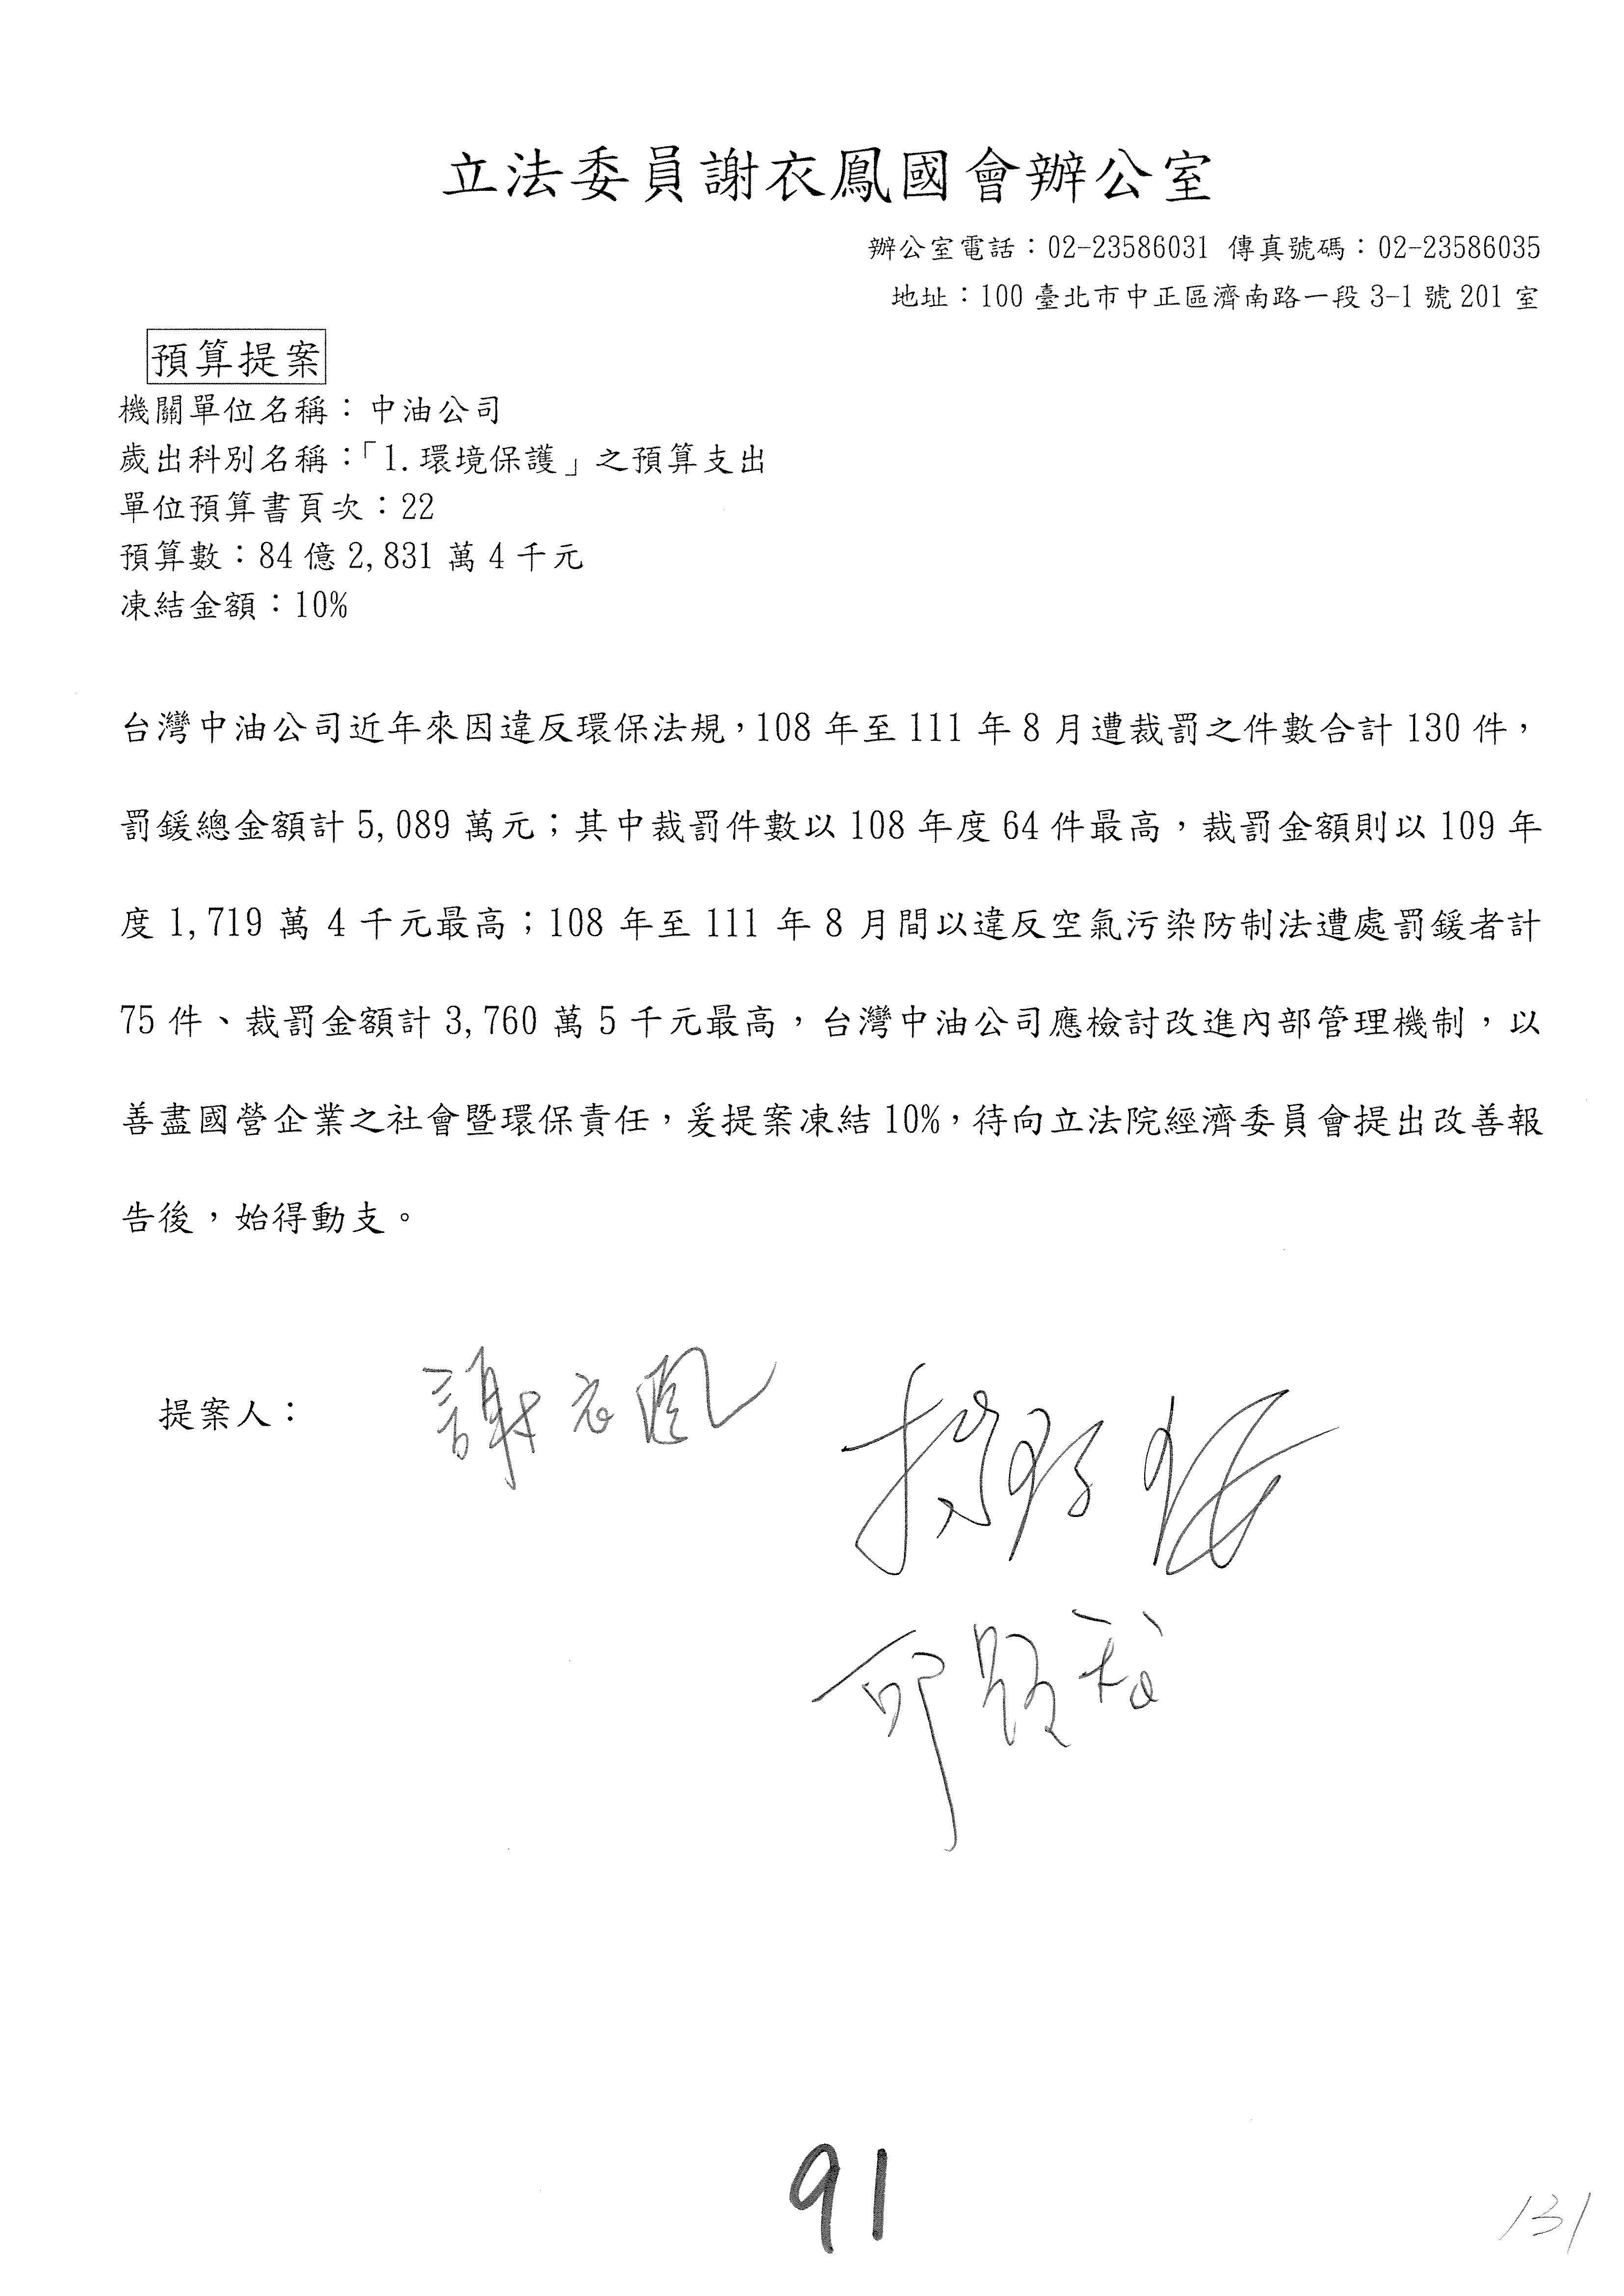 立法委員謝衣鳳國會辦公室
辦公室電話：02-23586031 傳真號碼：02-23586035
地址：100 臺北市中正區濟南路一段 3-1 號 201 室
預算提案
機關單位名稱：中油公司
歲出科別名稱：「1.環境保護」之預算支出
單位預算書頁次：22
預算數：84 億 2,831 萬 4 千元
凍結金額：10%
台灣中油公司近年來因違反環保法規，108 年至 111 年 8 月遭裁罰之件數合計 130 件，
罰鍰總金額計 5,089 萬元；其中裁罰件數以 108 年度 64 件最高，裁罰金額則以 109 年
度 1,719 萬 4 千元最高；108 年至 111 年 8 月間以違反空氣污染防制法遭處罰鍰者計
75 件、裁罰金額計 3,760 萬 5 千元最高，台灣中油公司應檢討改進內部管理機制，以
善盡國營企業之社會暨環保責任，爰提案凍結 10%，待向立法院經濟委員會提出改善報
告後，始得動支。
提案人：
謝衣鳳
91
131